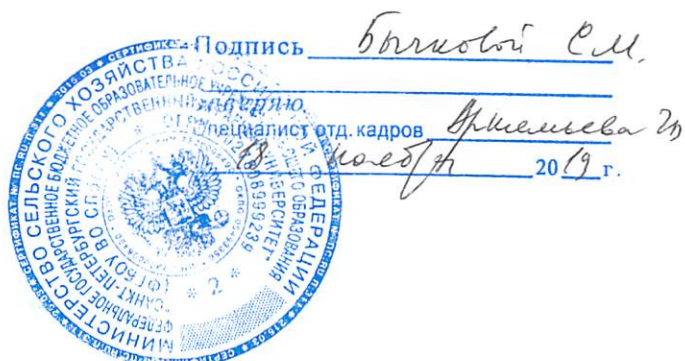 Подпись Бычковой С.М.
заверяю.
Специалист отд. кадров Артемьева
18 ноября 2019 г.
МИНИСТЕРСТВО СЕЛЬСКОГО ХОЗЯЙСТВА РОССИЙСКОЙ ФЕДЕРАЦИИ
ФЕДЕРАЛЬНОЕ ГОСУДАРСТВЕННОЕ БЮДЖЕТНОЕ ОБРАЗОВАТЕЛЬНОЕ УЧРЕЖДЕНИЕ ВЫСШЕГО ОБРАЗОВАНИЯ
"САНКТ-ПЕТЕРБУРГСКИЙ ГОСУДАРСТВЕННЫЙ АГРАРНЫЙ УНИВЕРСИТЕТ"
(ФГБОУ ВО СПбГАУ)
* 2 *